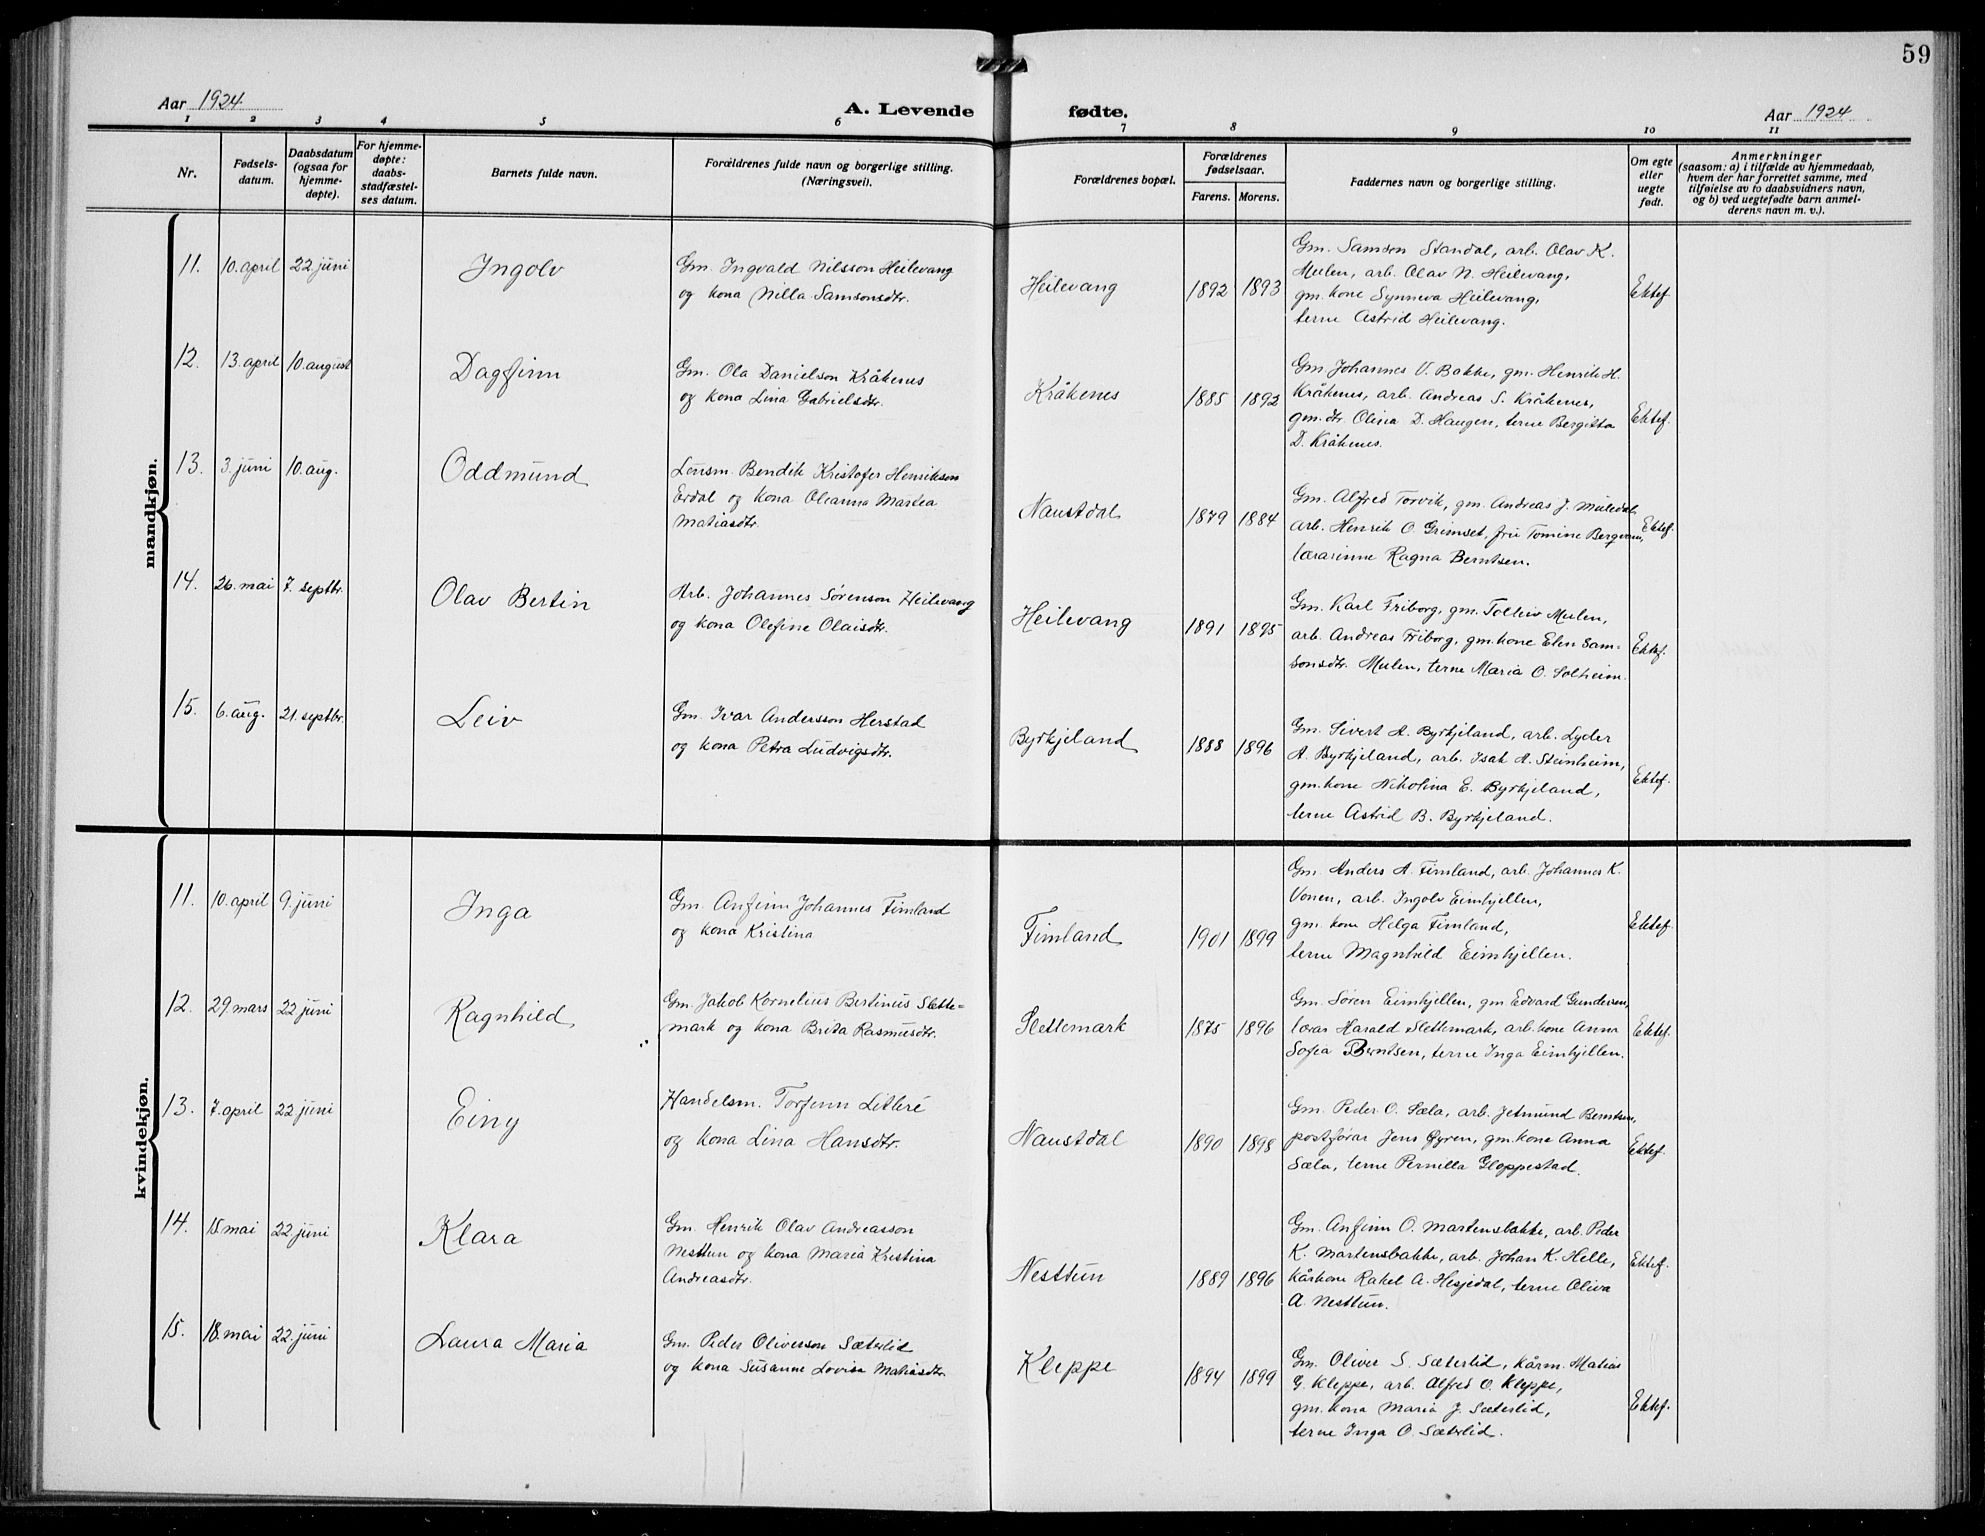 59
Aar 1924
A. Levende fødte.
Aar 1924
1 2 3 4 5 6 7 8 9 10 11
Nr.
Fødsels-
datum.
Daabsdatum
(ogsaa for
hjemme-
døpte).
For hjemme-
døpte:
daabs-
stadfæstel-
ses datum.
Barnets fulde navn.
Forældrenes fulde navn og borgerlige stilling.
(Næringsvei).
Forældrenes bopæl.
Forældrenes
fødselsaar.
Farens. Morens.
Faddernes navn og borgerlige stilling.
Om egte
eller
uegte
født.
Anmerkninger
(saasom: a) i tilfælde av hjemmedaab,
hvem der har forrettet samme, med
tilføielse av to daabsvidners navn,
og b) ved uegtefødte barn anmel-
derens navn m. v.).
mandkjøn.
11. 10. april 22. juni Ingolv
Gm. Ingvald Nilsson Heilevang
og kona Nilla Samsonsdtr.
Heilevang 1892 1893
Gm. Samson Standal, arb. Olav K.
Mulen, arb. Olav N. Heilevang,
gm. kone Synneva Heilevang,
terne Astrid Heilevang.
Ektef.
12. 13. april 10. august Dagfinn
Gm. Ola Danielson Kråkenes
og kona Lina Gabrielsdtr.
Kråkenes 1885 1892
Gm Johannes V. Bakke, gm. Henrik H.
Kråkenes, arb. Andreas S. Kråkenes,
gm. dtr. Olina D. Haugen, terne Bergitta
D. Kråkenes.
Ektef.
13. 3. juni 10. aug. Oddmund
Lensm. Bendik Kristofer Henrikson
Erdal og kona Oleanna Martea
Matiasdtr.
Naustdal 1879 1884
Gm. Alfred Torvik, gm. Andreas J. Muledal,
arb. Henrik O. Grimset, fru Tomine Bergvam,
lærarinne Ragna Berntsen.
Ektef.
14. 26. mai 7. septbr. Olav Bertin
Arb. Johannes Sørenson Heilevang
og kona Olefine Olaisdtr.
Heilevang 1891 1895
Gm. Karl Friborg, gm. Tolleiv Mulen,
arb. Andreas Friborg, gm. kone Elen Sam-
sonsdtr. Mulen, terne Maria O. Solheim.
Ektef.
15. 6. aug. 21. septbr. Leiv
Gm. Ivar Andersson Herstad
og kona Petra Ludvigsdtr.
Byrkjeland 1888 1896
Gm. Sivert A. Byrkjeland, arb. Lyder
A. Byrkjeland, arb. Isak A. Steinheim,
gm. kone Nikolina E. Byrkjeland,
terne Astrid B. Byrkjeland.
Ektef.
kvindekjøn.
11. 10. april 9. juni Inga
Gm. Anfinn Johannes Fimland
og kona Kristina
Fimland 1901 1899
Gm. Anders A. Fimland, arb. Johannes K.
Vonen, arb. Ingolv Eimhjellen,
gm. kone Helga Fimland,
terne Magnhild Eimhjellen.
Ektef.
12. 29. mars 22 juni Ragnhild
Gm. Jakob Kornelius Bertinus Slette-
mark og kona Brita Rasmusdtr.
Slettemark 1875 1896
Gm. Søren Eimhjellen, gm Edvard Gundersen,
lærar Harald Slettemark, arb. kone Anna
Sofia Berntsen, terne Inga Eimhjellen.
Ektef.
13. 7. april 22 juni Einy
Handelsm. Torfinn Litleré
og kona Lina Hansdtr.
Naustdal 1890 1898
Gm. Peder O. Sæla, arb. Jetmund Berntsen,
postførar Jens Øyren, gm. kone Anna
Sæla, terne Pernilla Gloppestad.
Ektef.
14. 15. mai 22 juni Klara
Gm. Henrik Olav Andreasson
Nesttun og kona Maria Kristina
Andreasdtr.
Nesttun 1889 1896
Gm. Anfinn O. Martensbakke, arb. Peder
K. Martensbakke, arb. Johan K. Helle,
kårkone Rakel A. Hesjedal, terne Oliva
A. Nesttun.
Ektef.
15. 18. mai 22. juni Laura Maria
Gm. Peder Oliversson Sæterlid
og kona Susanne Lovisa Matiasdtr.
Kleppe 1894 1899
Gm. Oliver S. Sæterlid, kårm. Matias
G. Kleppe, arb. Alfred O. Kleppe,
gm. kona Maria J. Sæterlid,
terne Inga O. Sæterlid.
Ektef.